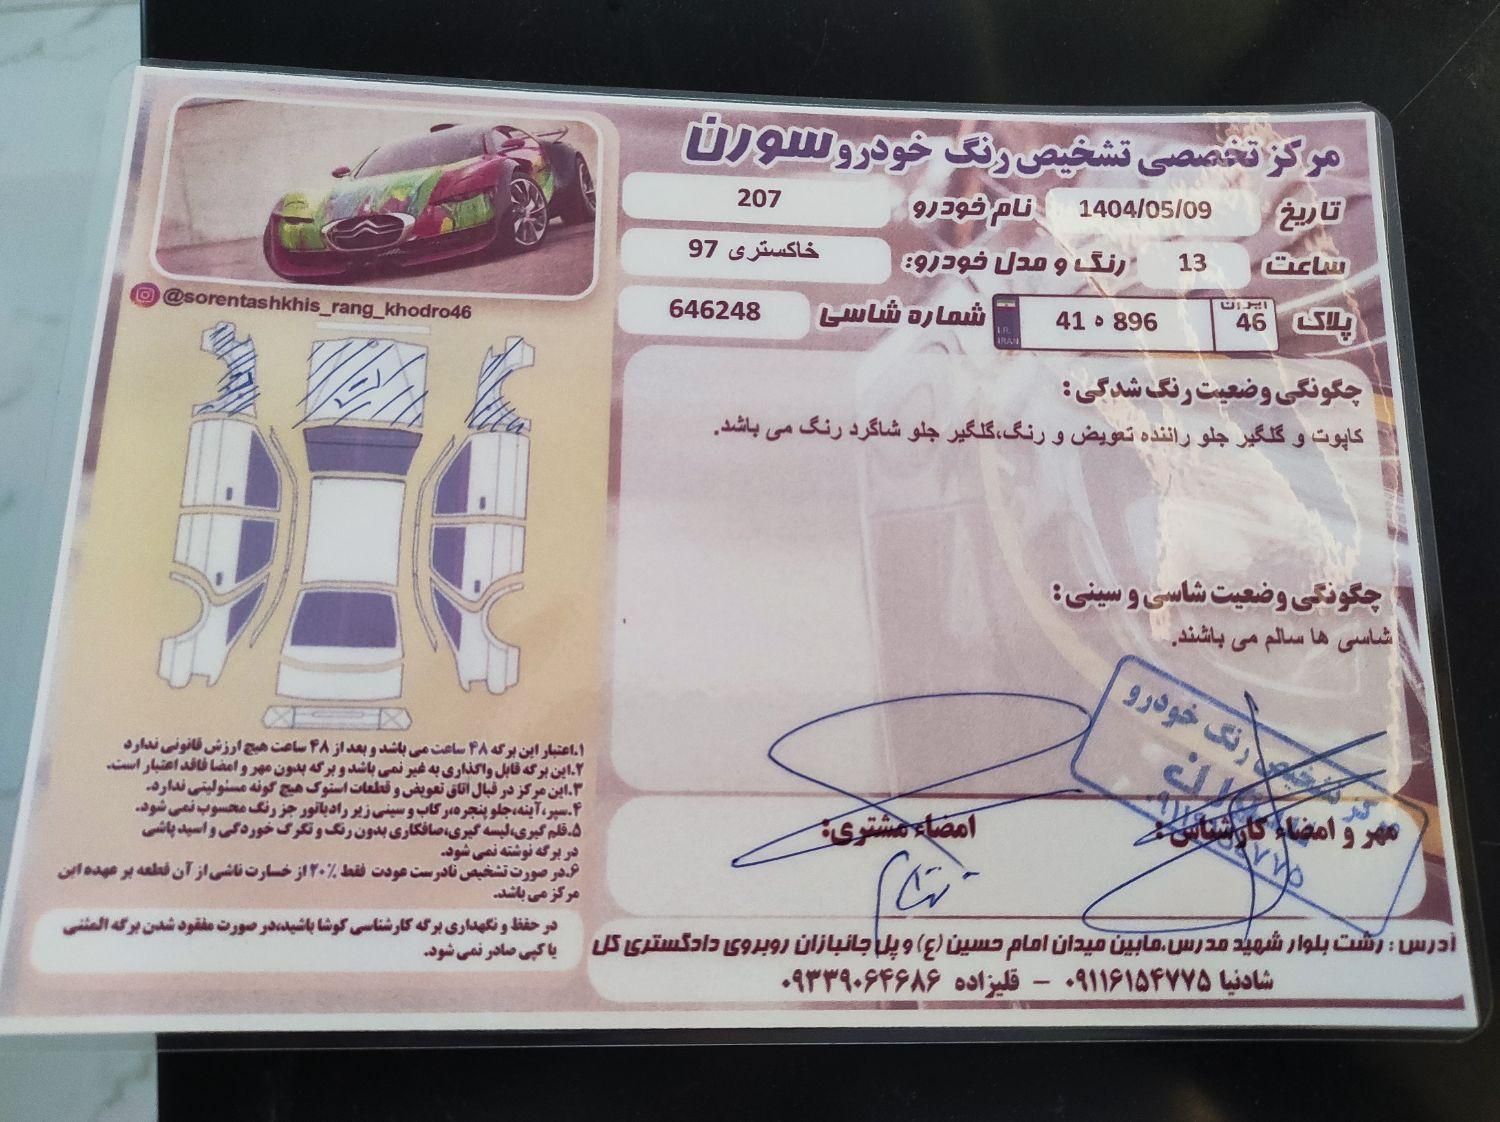 مرکز تخصصی تشخیص رنگ خودرو سورن
تاریخ 1404/05/09 نام خودرو 207
ساعت 13 رنگ و مدل خودرو: خاکستری 97
پلاک ایران 46 896 ه 41 I.R. IRAN شماره شاسی 646248
چگونگی وضعیت رنگ شدگی :
کاپوت و گلگیر جلو راننده تعویض و رنگ،گلگیر جلو شاگرد رنگ می باشد.
چگونگی وضعیت شاسی و سینی :
شاسی ها سالم می باشند.
مهر و امضاء کارشناس: امضاء مشتری:
مرکز تشخیص رنگ خودرو
سورن
@sorentashkhis_rang_khodro46
۱.اعتبار این برگه ۴۸ ساعت می باشد و بعد از ۴۸ ساعت هیچ ارزش قانونی ندارد
۲.این برگه قابل واگذاری به غیر نمی باشد و برگه بدون مهر و امضا فاقد اعتبار است.
۳.این مرکز در قبال اتاق تعویض و قطعات استوک هیچ گونه مسئولیتی ندارد.
۴.سپر،آینه،جلو پنجره، رکاب و سینی زیر رادیاتور جز رنگ محسوب نمی شود.
۵.قلم گیری،لیسه گیری،صافکاری بدون رنگ و تگرک خوردگی و اسید پاشی
در برگه نوشته نمی شود.
۶.در صورت تشخیص نادرست عودت فقط ۲۰٪ از خسارت ناشی از آن قطعه بر عهده این
مرکز می باشد.
در حفظ و نگهداری برگه کارشناسی کوشا باشید،در صورت مفقود شدن برگه المثنی
یا کپی صادر نمی شود.
آدرس : رشت بلوار شهید مدرس،مابین میدان امام حسین (ع) و پل جانبازان روبروی دادگستری کل
شادنیا ۰۹۱۱۶۱۵۴۷۷۵ – قلیزاده ۰۹۳۳۹۰۶۴۶۸۶